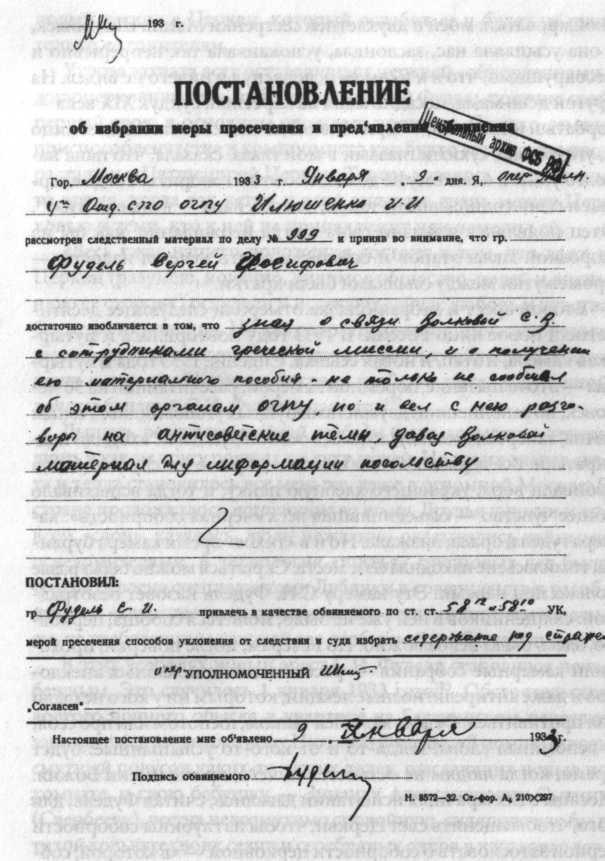 193 г.
ПОСТАНОВЛЕНИЕ
об избрании меры пресечения и пред'явлении обвинения
Центральный архив ФСБ РФ
Гор. Москва 1933 г. Января 9 дня. Я, опер
СПО ОГПУ Илюшенко И.И
рассмотрев следственный материал по делу № 999 и приняв во внимание, что гр.
Фудель Сергей Иосифович
достаточно изобличается в том, что зная о связи Волковой С.В.
с сотрудниками греческой миссии и о получении
ею материального пособия - не только не сообщил
об этом органам ОГПУ но и вел с нею разго-
воры на антисоветские темы, давая Волковой
материал для информации посольству
ПОСТАНОВИЛ:
гр. Фудель С. И. привлечь в качестве обвиняемого по ст. ст. 58¹² - 58¹⁰ УК,
мерой пресечения способов уклонения от следствия и суда избрать содержание под стражей
опер УПОЛНОМОЧЕННЫЙ
„Согласен"
Настоящее постановление мне об'явлено 9 Января 1933 г.
Подпись обвиняемого Фудель
Н. 8572—32. Ст. фор. А₄ 210×297